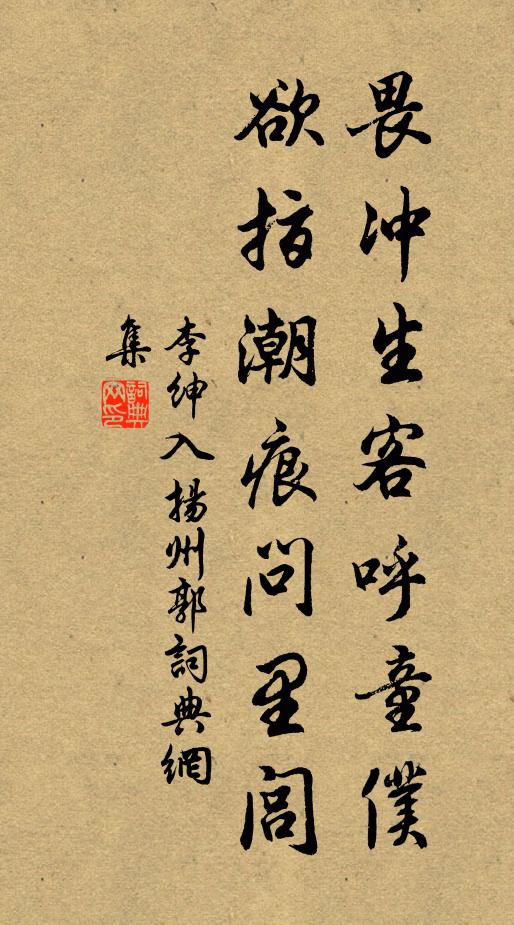 畏冲生客呼童僕
欲指潮痕問里閭
李紳入揚州郭詞典網
集
詞典
网印